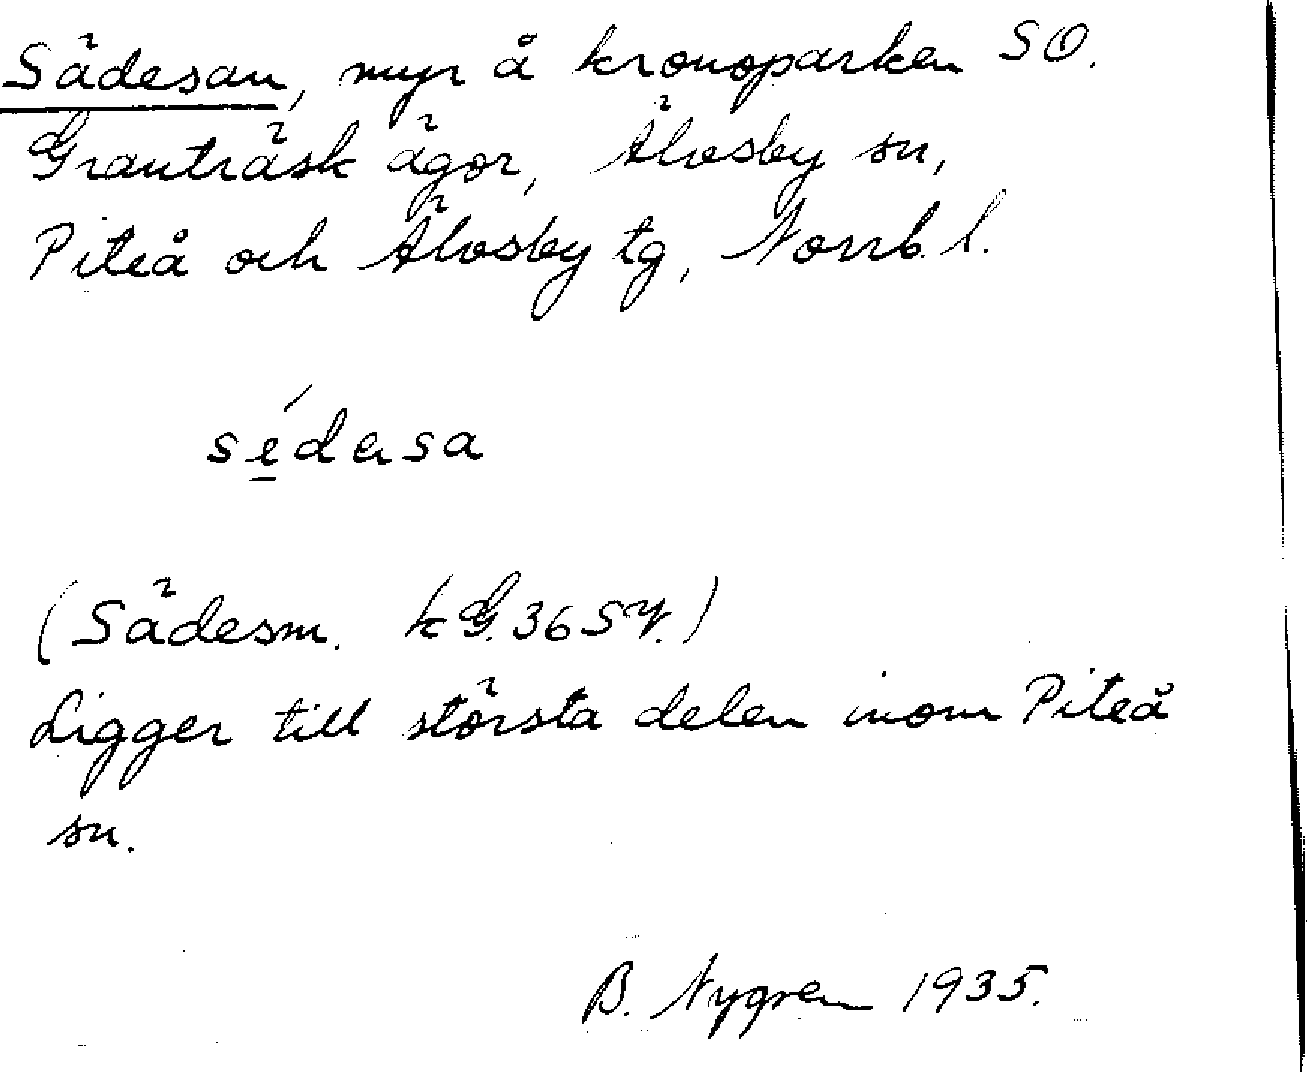 Sädesan, myr å kronoparken SO.
Granträsk ägor, Älvsby sn,
Piteå och Älvsby tg, Norrb. l.
sédasa
(Sädesm. kG. 36 SV.)
Ligger till största delen inom Piteå
sn.
B. Nygren 1935.